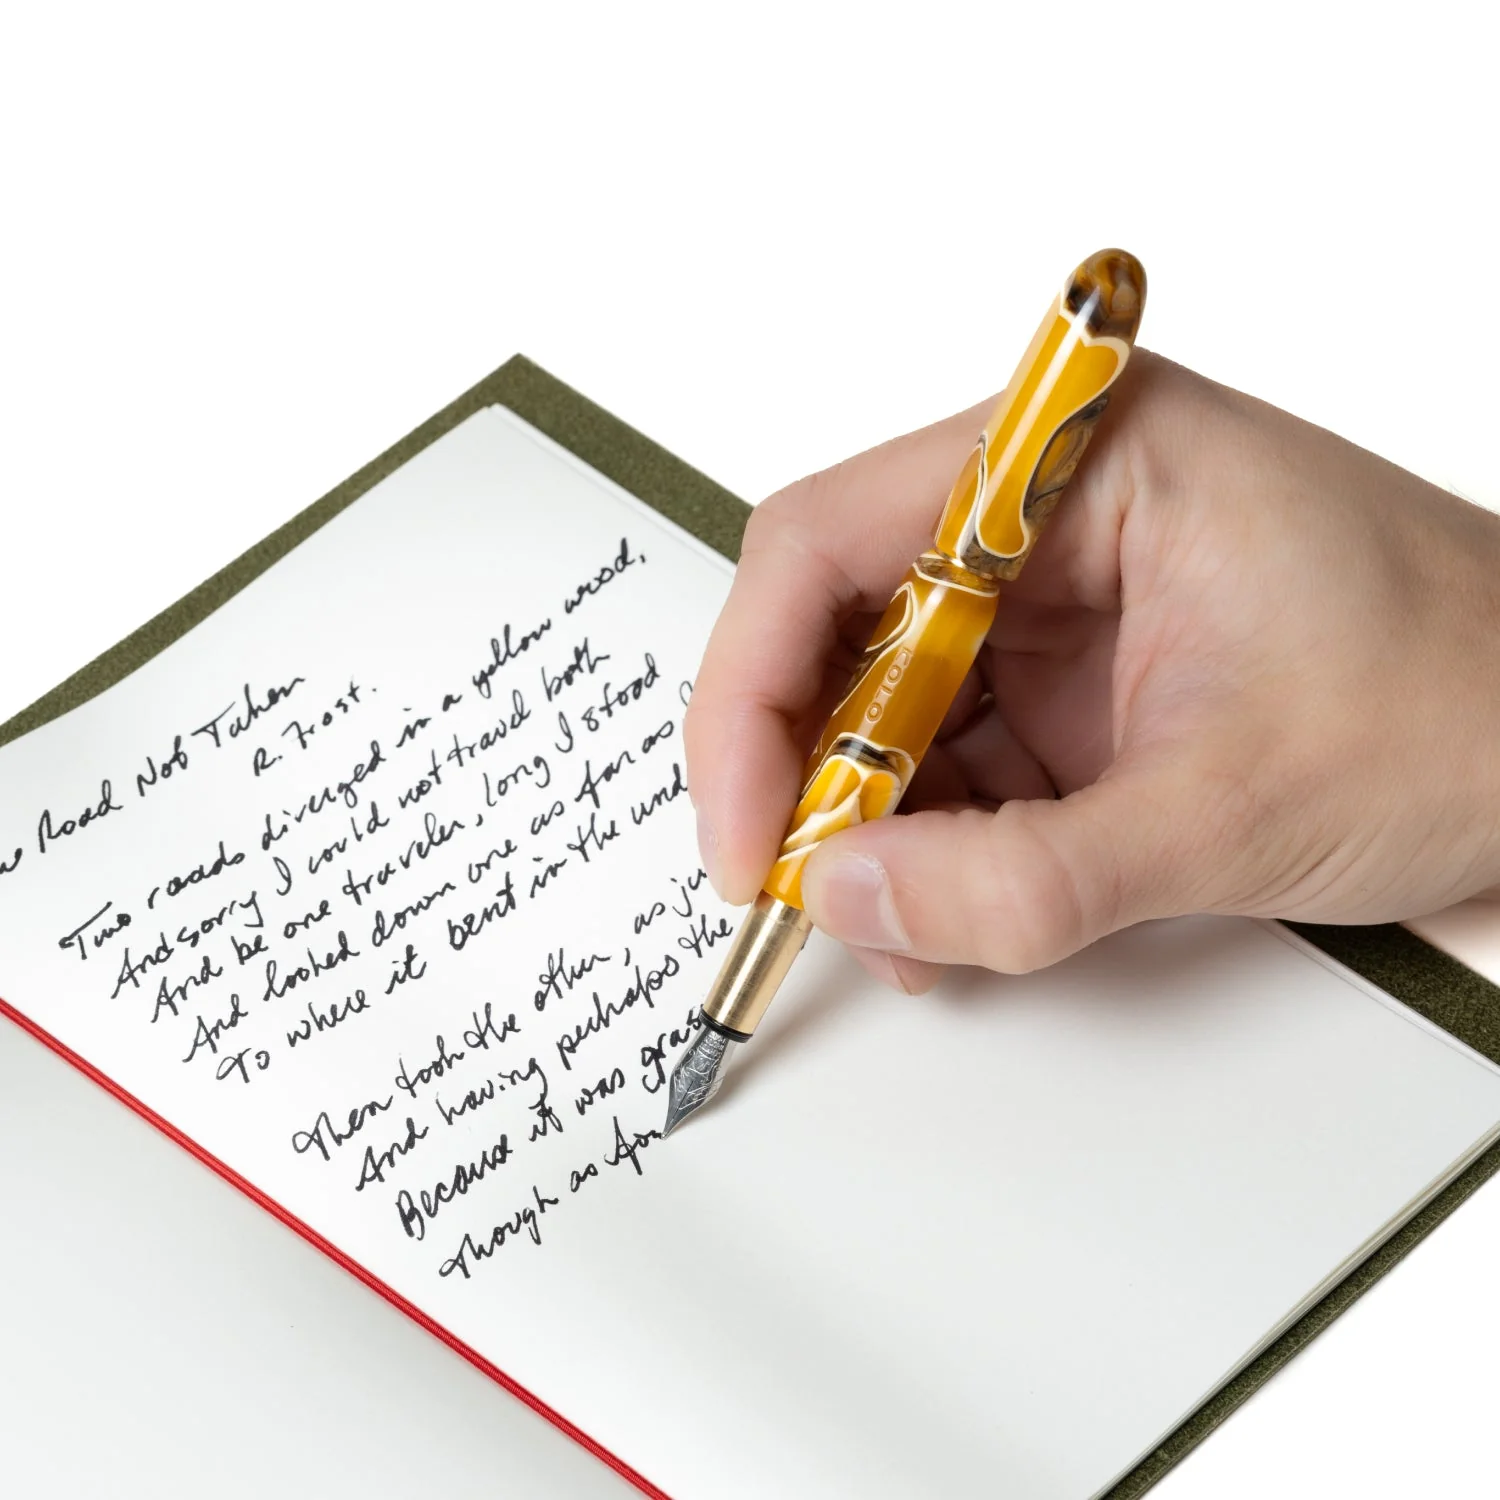 Road Not Taken
R. Frost.
Two roads diverged in a yellow wood,
And sorry I could not travel both
And be one traveler, long I stood
And looked down one as far as
To where it bent in the und
Then took the other, as ju
And having perhaps the
Because it was gras
Though as for
COLO